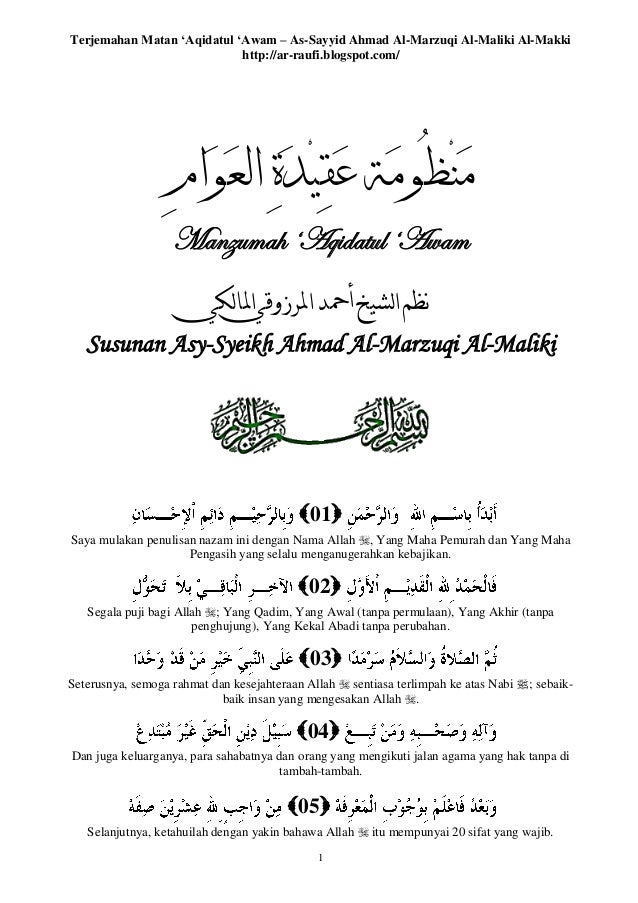 Terjemahan Matan ‘Aqidatul ‘Awam – As-Sayyid Ahmad Al-Marzuqi Al-Maliki Al-Makki
http://ar-raufi.blogspot.com/
مَنْظُومَة عَقِيْدَةِ العَوَامِ
Manzumah ‘Aqidatul ‘Awam
نظم الشيخ أحمد المرزوقي المالكي
Susunan Asy-Syeikh Ahmad Al-Marzuqi Al-Maliki
بسم الله الرحمن الرحيم
أَبْدَأُ بِاسْـــمِ اللهِ وَالرَّحْمَنِ ﴿01﴾ وَبِالرَّحِيْـــمِ دَائِمِ الْإِحْـــسَانِ
Saya mulakan penulisan nazam ini dengan Nama Allah ﷻ, Yang Maha Pemurah dan Yang Maha
Pengasih yang selalu menganugerahkan kebajikan.
فَالْحَمْدُ لِلهِ الْقَدِيْـــمِ الْأَوَّلِ ﴿02﴾ الآخِـــرِ الْبَاقِـــيْ بِلاَ تَحَوُّلِ
Segala puji bagi Allah ﷻ; Yang Qadim, Yang Awal (tanpa permulaan), Yang Akhir (tanpa
penghujung), Yang Kekal Abadi tanpa perubahan.
ثُمَّ الصَّلاَةُ وَالسَّلاَمُ سَرْمَدًا ﴿03﴾ عَلَى النَّبِيِّ خَيْرِ مَنْ قَدْ وَحَّدَا
Seterusnya, semoga rahmat dan kesejahteraan Allah ﷻ sentiasa terlimpah ke atas Nabi ﷺ; sebaik-
baik insan yang mengesakan Allah ﷻ.
وَآلِهِ وَصَحْـــبِهِ وَمَنْ تَبِـــعْ ﴿04﴾ سَبِيْلَ دِيْنِ الْحَقِّ غَيْرَ مُبْتَدِعْ
Dan juga keluarganya, para sahabatnya dan orang yang mengikuti jalan agama yang hak tanpa di
tambah-tambah.
وَبَعْدُ فَاعْلَمْ بِوُجُوْبِ الْمَعْرِفَهْ ﴿05﴾ مِنْ وَاجِبٍ لِلهِ عِشْرِيْنَ صِفَهْ
Selanjutnya, ketahuilah dengan yakin bahawa Allah ﷻ itu mempunyai 20 sifat yang wajib.
1